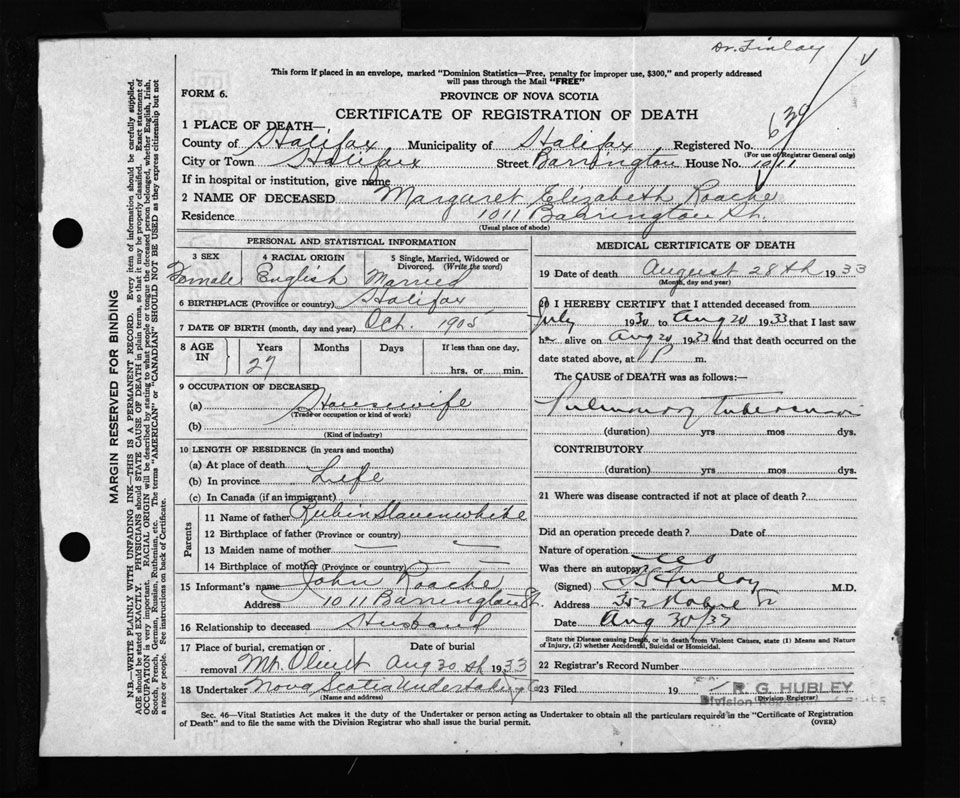 Dr. Finlay
This form if placed in an envelope, marked "Dominion Statistics—Free, penalty for improper use, $300," and properly addressed
will pass through the Mail "FREE"
FORM 6.
PROVINCE OF NOVA SCOTIA
CERTIFICATE OF REGISTRATION OF DEATH
1 PLACE OF DEATH—
County of Halifax Municipality of Halifax Registered No.
(For use of Registrar General only)
City or Town Halifax Street Barrington House No. 1011
If in hospital or institution, give name
2 NAME OF DECEASED Margaret Elizabeth Roache
Residence 1011 Barrington St.
(Usual place of abode)
MARGIN RESERVED FOR BINDING
N.B.—WRITE PLAINLY WITH UNFADING INK—THIS IS A PERMANENT RECORD. Every item of information should be carefully supplied.
AGE should be stated EXACTLY. PHYSICIANS should STATE CAUSE OF DEATH in plain terms, so that it may be properly classified. Exact statement of
OCCUPATION is very important. RACIAL ORIGIN will be described by stating to what people or tongue the deceased person belonged, whether English, Irish,
Scotch, French, German, Russian, Ruthenian, etc. The terms "AMERICAN" or "CANADIAN" SHOULD NOT BE USED as they express citizenship but not
a race or people. See instructions on back of Certificate.
PERSONAL AND STATISTICAL INFORMATION
3 SEX 4 RACIAL ORIGIN 5 Single, Married, Widowed or
Divorced. (Write the word)
Female English Married
6 BIRTHPLACE (Province or country) Halifax
7 DATE OF BIRTH (month, day and year) Oct. 1905
8 AGE IN Years Months Days If less than one day,
27 hrs. or min.
9 OCCUPATION OF DECEASED
(a) Housewife
(Trade or occupation or kind of work)
(b)
(Kind of industry)
10 LENGTH OF RESIDENCE (in years and months)
(a) At place of death
(b) In province Life
(c) In Canada (if an immigrant)
Parents
11 Name of father Rubin Slauenwhite
12 Birthplace of father (Province or country)
13 Maiden name of mother —
14 Birthplace of mother (Province or country) —
15 Informant's name John Roache
Address 1011 Barrington St.
16 Relationship to deceased Husband
17 Place of burial, cremation or Date of burial
removal Mt. Olivet Aug 30 th 1933
18 Undertaker Nova Scotia Undertaking Co
(Name and address)
MEDICAL CERTIFICATE OF DEATH
19 Date of death August 28th 1933
(Month, day and year)
20 I HEREBY CERTIFY that I attended deceased from
July 1930 to Aug 20 1933 that I last saw
her alive on Aug 20 1933 and that death occurred on the
date stated above, at P m.
The CAUSE of DEATH was as follows:—
Pulmonary Tuberculosis
(duration) yrs mos dys.
CONTRIBUTORY
(duration) yrs mos dys.
21 Where was disease contracted if not at place of death?
Did an operation precede death? Date of
Nature of operation
Was there an autopsy?
(Signed) Finlay M.D.
Address
Date Aug 30/33
State the Disease causing Death, or in death from Violent Causes, state (1) Means and Nature
of Injury, (2) whether Accidental, Suicidal or Homicidal.
22 Registrar's Record Number
23 Filed 19 R. G. HUBLEY
(Division Registrar)
Sec. 46—Vital Statistics Act makes it the duty of the Undertaker or person acting as Undertaker to obtain all the particulars required in the "Certificate of Registration
of Death" and to file the same with the Division Registrar who shall issue the burial permit. (OVER)